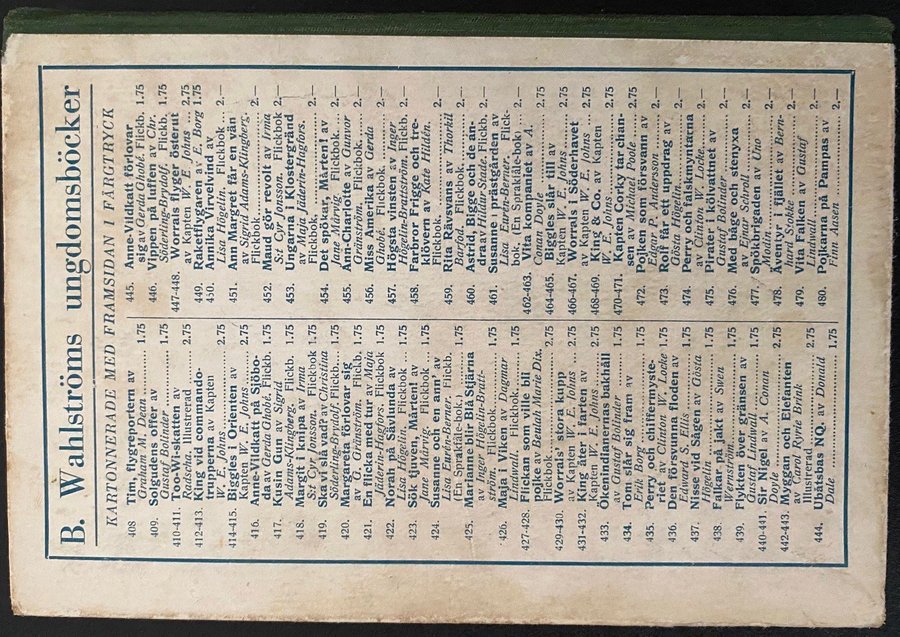 B. Wahlströms ungdomsböcker
KARTONNERADE MED FRAMSIDAN I FÄRGTRYCK
408 Tim, flygreportern av
Graham M. Dean ........ 1.75
409. Solgudens offer av
Gustaf Bolinder ........ 1.75
410-411. Too-Wi-skatten av
Rodscha. Illustrerad ... 2.75
412-413. King vid commando-
trupperna av Kapten
W. E. Johns ........ 2.75
414-415. Biggles i Orienten av
Kapten W. E. Johns ... 2.75
416. Anne-Vildkatt på Sjöbo-
da av Gerda Ghobé. Flickb. 1.75
417. Kusin Gunnel av Sigrid
Adams-Klingberg. Flickb. 1.75
418. Margit i knipa av Irma
S:t Cyr Jonsson. Flickbok 1.75
419. Maj slår till av Christina
Söderling-Brydolf. Flickb. 1.75
420. Margareta förlovar sig
av G. Gränström. Flickb. 1.75
421. En flicka med tur av Maja
Jäderin-Hagfors. Flickbok 1.75
422. Nora på Sävlunda av
Lisa Högelin. Flickbok ... 1.75
423. Sök tjuven, Mårten! av
Jane Mårrig. Flickbok ... 1.75
424. Susanne för ann' av
Lisa Eurén-Berner. Flickb.
(En Språkfåle-bok.) ... 1.75
425. Marianne blir Blå Stjärna
av Inger Högelin-Bratt-
ström. Flickbok ........ 1.75
426. Maj i Viken av Dagmar
Lindwall. Flickbok. ..... 1.75
427-428. Flickan som ville bli
pojke av Beulah Marie Dix.
Flickbok ........ 2.75
429-430. Worrals' stora kupp
av Kapten W. E. Johns 2.75
431-432. King åter i farten av
Kapten W. E. Johns ... 2.75
433. Ökenindianernas bakhåll
av Gustaf Bolinder ...... 1.75
434. Tom slår sig fram av
Erik Borg ........ 1.75
435. Perry och chiffermyste-
riet av Clinton W. Locke 1.75
436. Den försvunna floden av
Edward S. Ellis ........ 1.75
437. Nisse vid Sågen av Gösta
Högelin ........ 1.75
438. Falkar på jakt av Swen
Wernström ........ 1.75
439. Flykten över gränsen av
Gustaf Lindwall ........ 1.75
440-441. Sir Nigel av A. Conan
Doyle ........ 2.75
442-443. Myggan och Elefanten
av Carol Ryrie Brink.
Illustrerad ........ 2.75
444. Ubåtsbas NQ. av Donald
Dale ........ 1.75
445. Anne-Vildkatt förlovar
sig av Gerda Ghobé. Flickb. 1.75
446. Vippen på luffen av Chr.
Söderling-Brydolf. Flickb. 1.75
447-448. Worrals flyger österut
av Kapten W. E. Johns ... 2.75
449. Raketflygaren av E. Borg 1.75
450. Annika Virvelvind av
Lisa Högelin. Flickbok ... 2.—
451. Ann Margret får en vän
av Sigrid Adams-Klingberg.
Flickbok ........ 2.—
452. Maud gör revolt av Irma
S:t Cyr Jonsson. Flickbok 2.—
453. Ungarna i Klostergränd
av Maja Jäderin-Hagfors.
Flickbok. ........ 2.—
454. Det spökar, Mårten! av
Jane Mårrig. Flickbok ... 2.—
455. Ann-Charlotte av Gunvor
Gränström. Flickbok. ... 2.—
456. Miss Amerika av Gerda
Ghobé. Flickbok ........ 2.—
457. Högsta vinsten av Inger
Högelin-Brattström. Flickb. 2.—
458. Farbror Frigge och tre-
klövern av Kate Hildén.
Flickbok. ........ 2.—
459. Rita Rävsvans av Thorkil
Barfod. Flickbok ........ 2.—
460. Astrid, Bigge och de an-
dra av Hildur Stade. Flickb. 2.—
461. Susanne i prästgården av
Lisa Eurén-Berner. Flick-
bok. (En Språkfåle-bok) ... 2.—
462-463. Vita kompaniet av A.
Conan Doyle ........ 2.75
464-465. Biggles slår till av
Kapten W. E. Johns ... 2.—
466-467. Worrals i Söderhavet
av Kapten W. E. Johns ... 2.—
468-469. King & Co. av Kapten
W. E. Johns ........ 2.—
470-471. Kapten Corky tar chan-
sen av Michael Poole ... 2.—
472. Pojken som försvann av
Edgar P. Andersson ...... 2.—
473. Rolf får ett uppdrag av
Gösta Högelin. ........ 2.—
474. Perry och falskmyntarna
av Clinton W. Locke ..... 2.—
475. Pirater i kölvattnet av
Gustaf Bolinder ........ 2.—
476. Med båge och stenyxa
av Oscar Schroll ........ 2.—
477. Spökbrigaden av Uno
Modin. ........ 2.—
478. Äventyr i fjället av Bern-
hard Stokke ........ 2.—
479. Vita Falken av Gustaf
Lindwall ........ 2.—
480. Pojkarna på Pampas av
Finn Aasen ........ 2.—